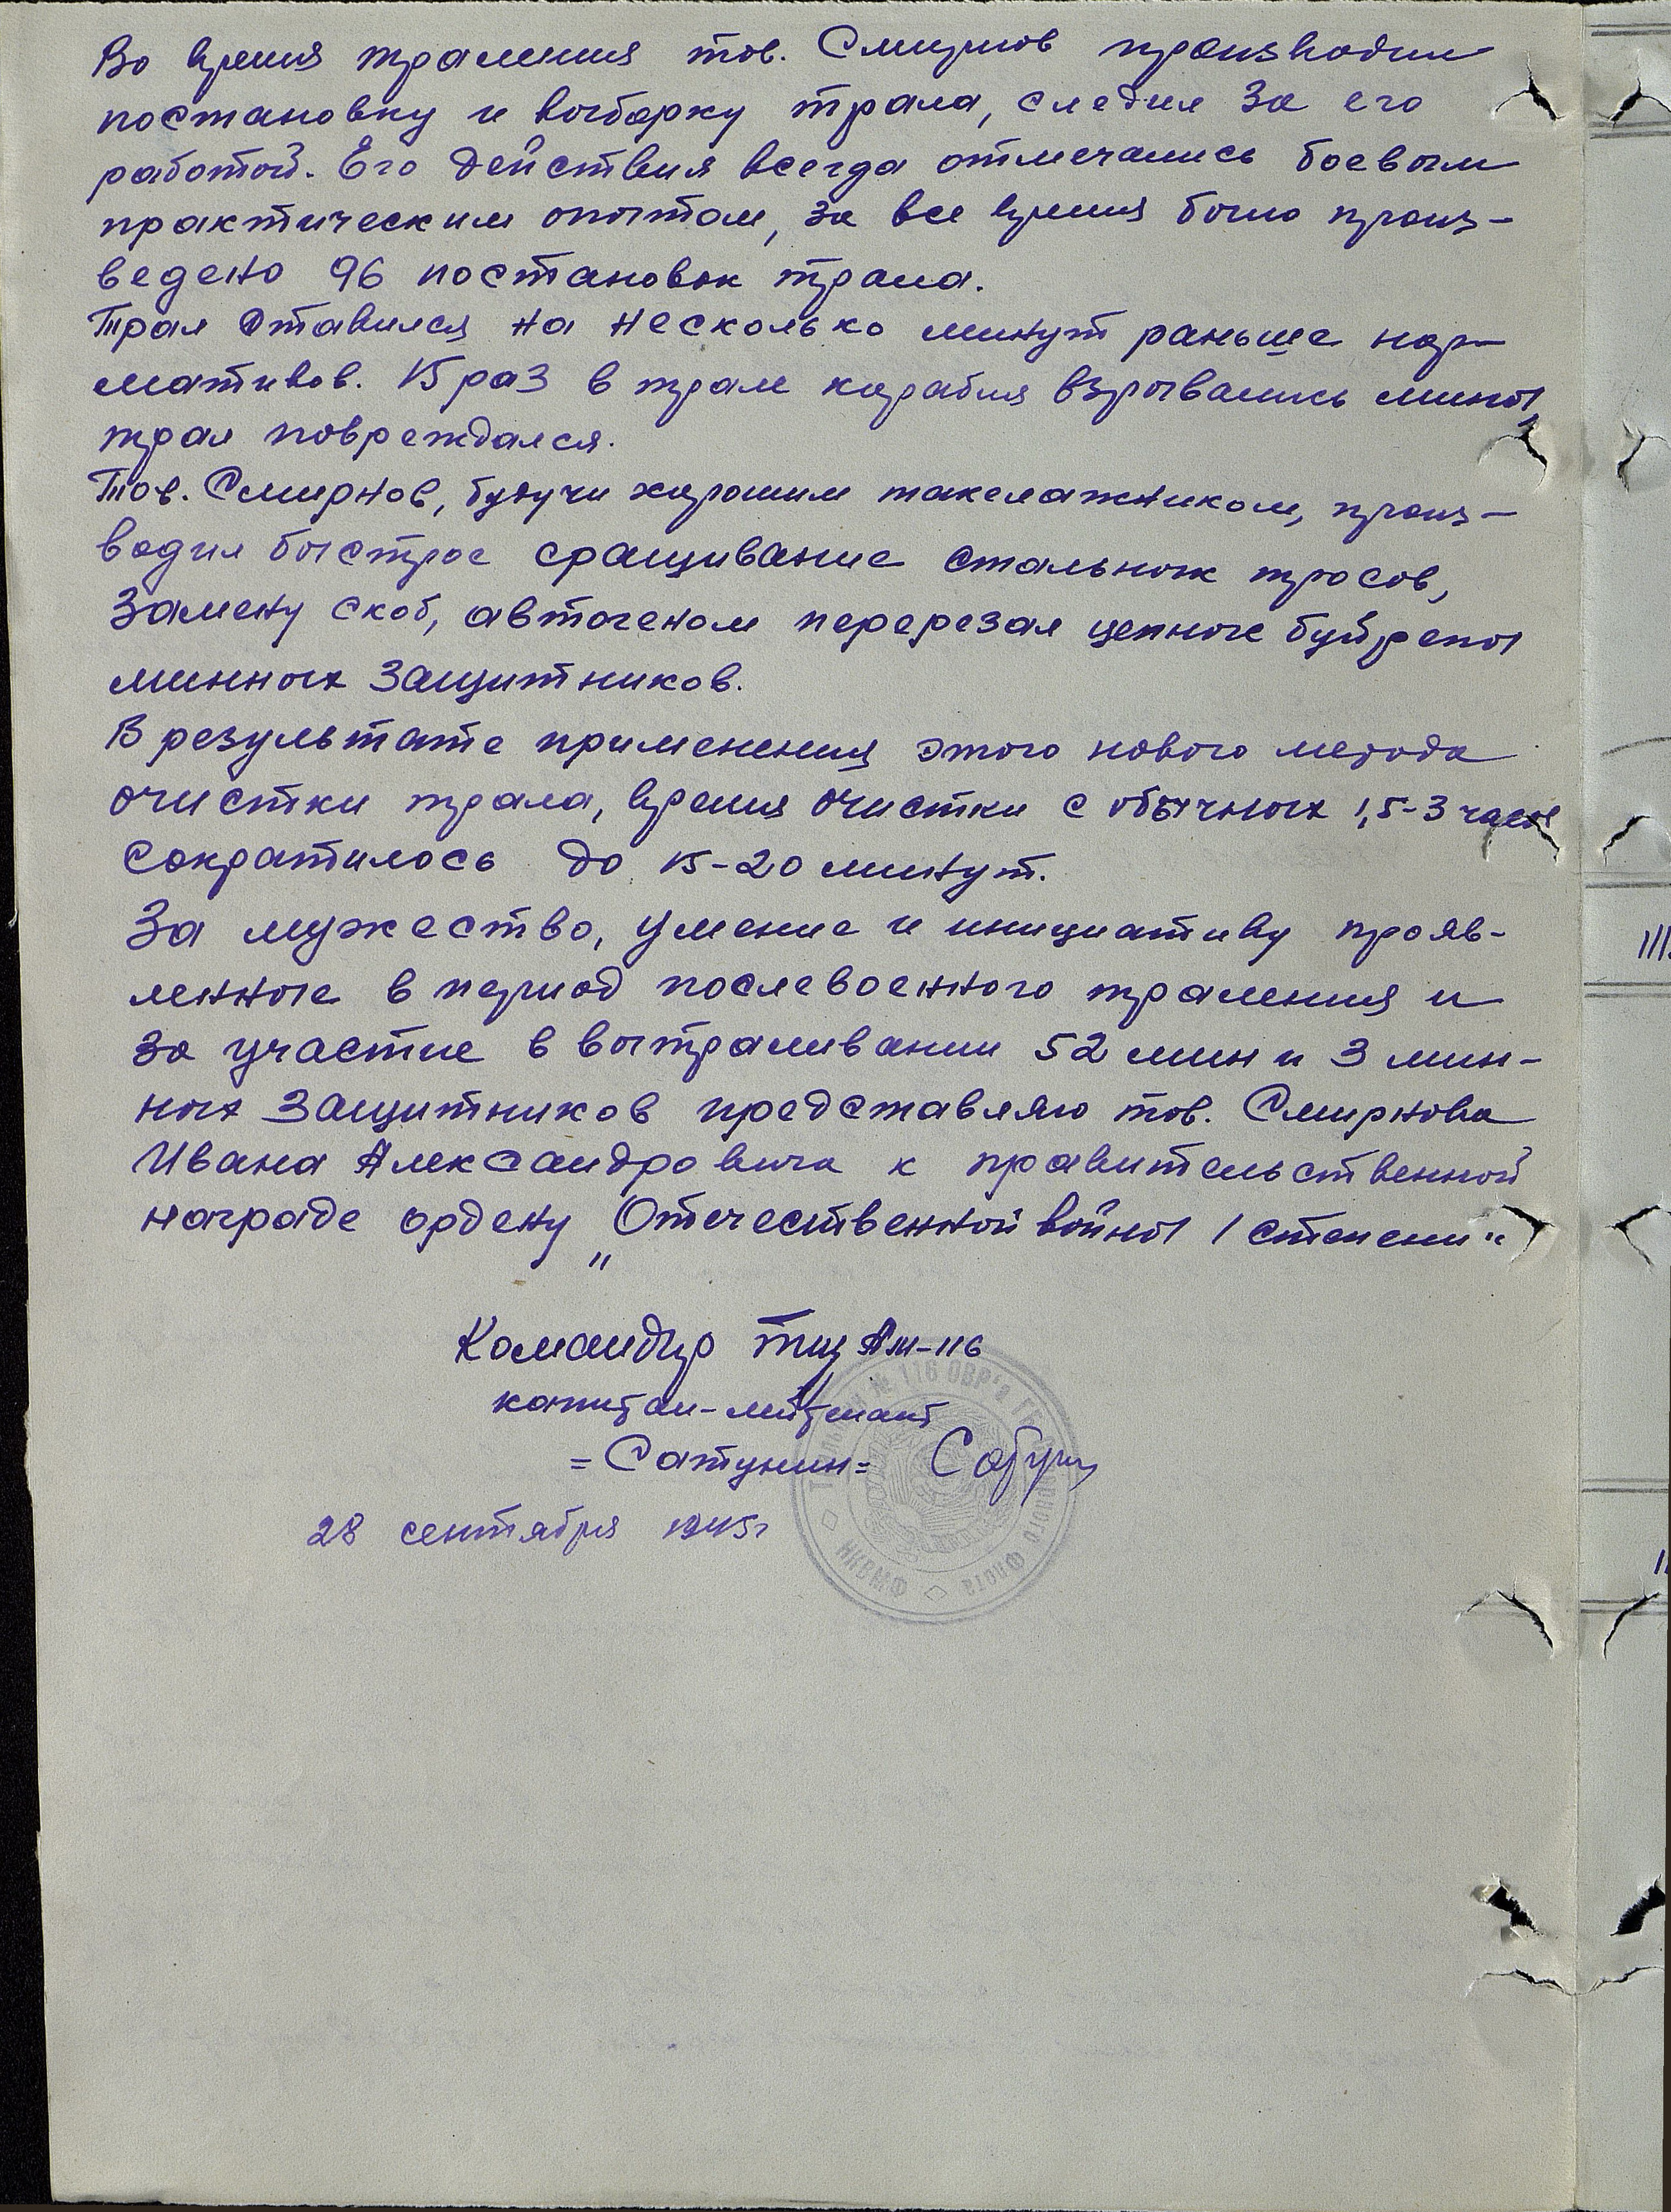 Во время траления тов. Смирнов производил
постановку и выборку трала, следил за его
работой. Его действия всегда отмечались боевым
практическим опытом, за все время было произ-
ведено 96 постановок трала.
Трал ставился на несколько минут раньше нор-
мативов. 15 раз в трале корабля взрывались мины,
трал повреждался.
Тов. Смирнов, будучи хорошим такелажником, произ-
водил быстрое сращивание стальных тросов,
замену скоб, автогеном перерезал цепные буйрепы
минных защитников.
В результате применения этого нового метода
очистки трала, время очистки с обычных 1,5-3 часов
сократилось до 15-20 минут.
За мужество, умение и инициативу прояв-
ленные в период послевоенного траления и
за участие в вытраливании 52 мин и 3 мин-
ных защитников представляю тов. Смирнова
Ивана Александровича к правительственной
награде ордену „Отечественной войны 1 степени"
Командир ТЩ АМ-116
капитан-лейтенант
=Сатунин=
28 сентября 1945г
№ 116 ОВР'а
Флота
НКВМФ